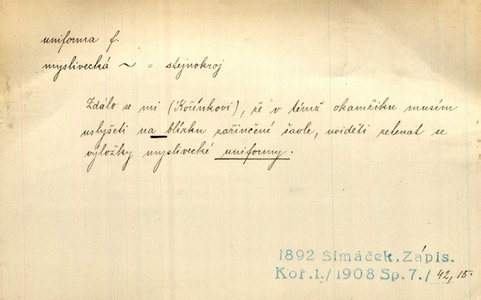 uniforma f.
myslivecká ~ = stejnokroj
Zdálo se mi (Kořínkovi), že v témž okamžiku musím
uslyšeti na blízku zařinčení šavle, uviděti zelenat se
výložky myslivecké uniformy.
1892 Simáček. Zápis.
Koř. 1./1908 Sp. 7./ 42, 15.